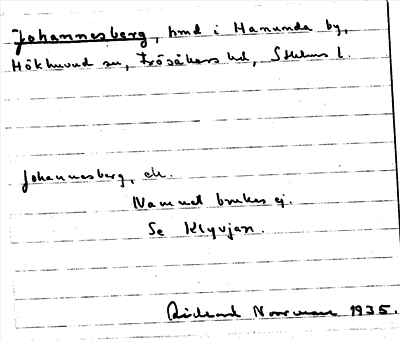 Johannesberg, hmd i Hanunda by,
Hökhuvud sn, Frösåkers hd, Sthlms l.
Johannesberg, ch.
Namnet brukes ej.
Se Klyvjan.
Rickard Norrman 1935.